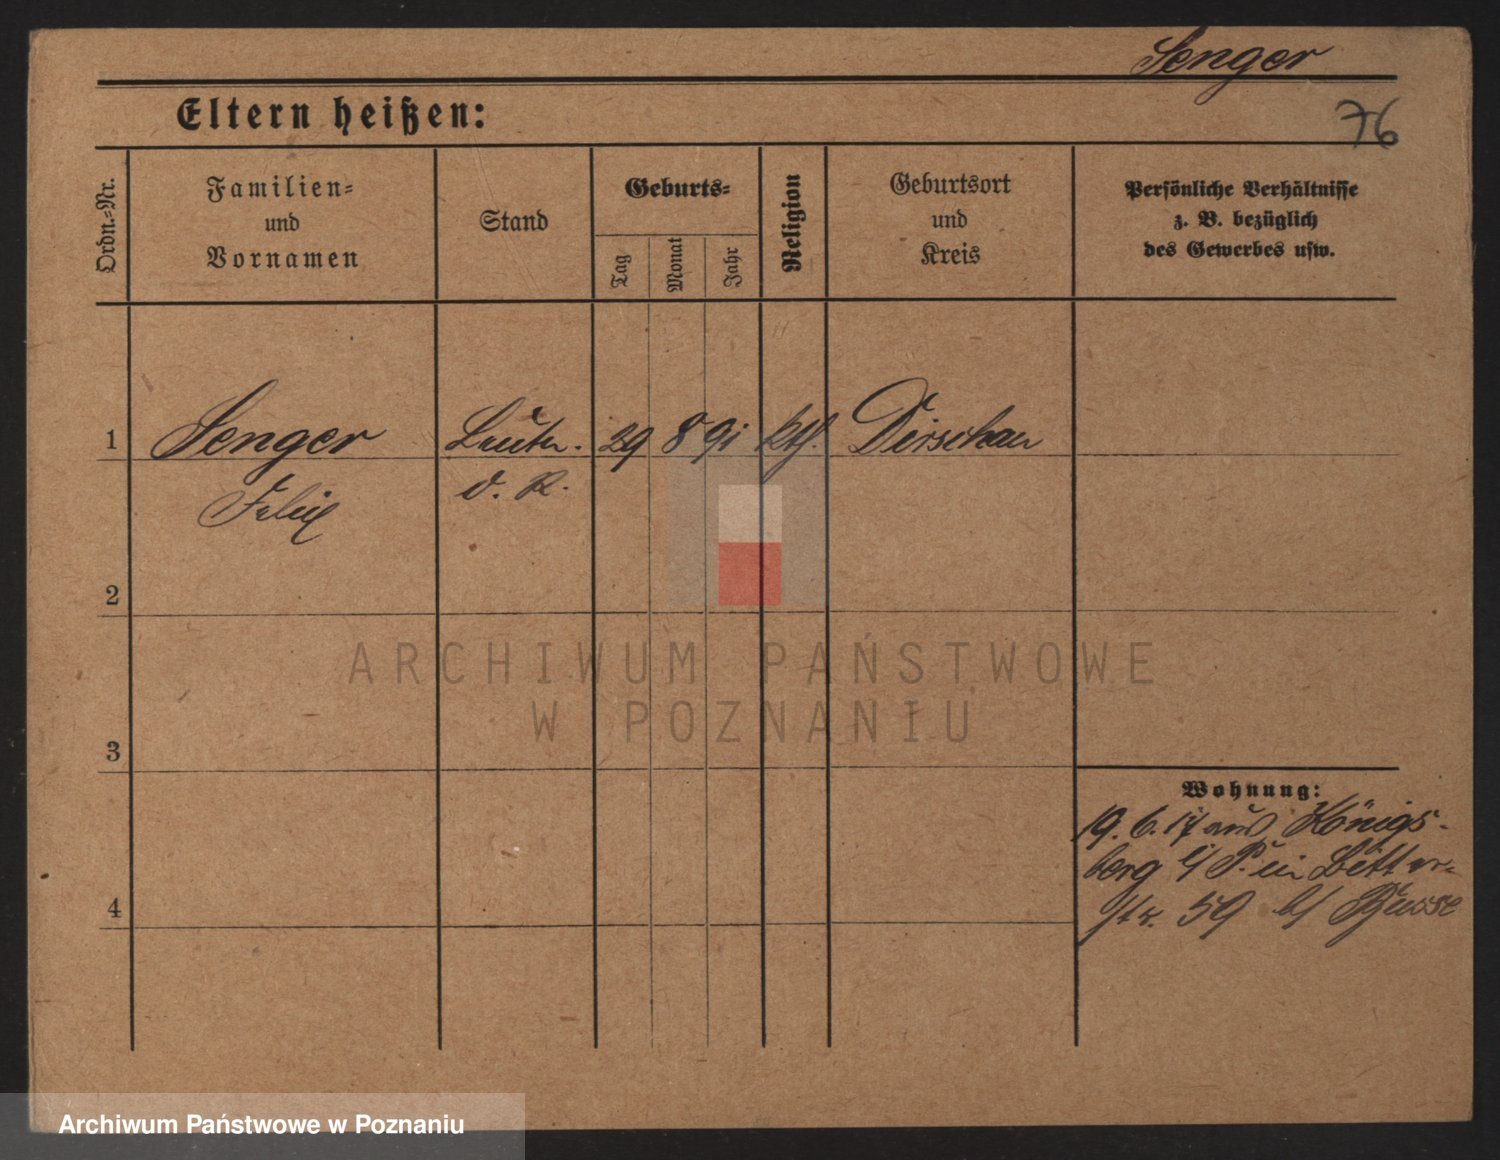 Senger
Eltern heißen:
76
Ordn.-Nr.
Familien-
und
Vornamen
Stand
Geburts-
Tag
Monat
Jahr
Religion
Geburtsort
und
Kreis
Persönliche Verhältnisse
z. B. bezüglich
des Gewerbes usw.
1
Senger
Leutn.
29
8
91
kth.
Dirschau
Felix
d. R.
2
ARCHIWUM PAŃSTWOWE
W POZNANIU
3
Wohnung:
19. 6. 17 aus Königs-
berg i/P. in Bitter-
str. 59 b/ Busse
4
Archiwum Państwowe w Poznaniu